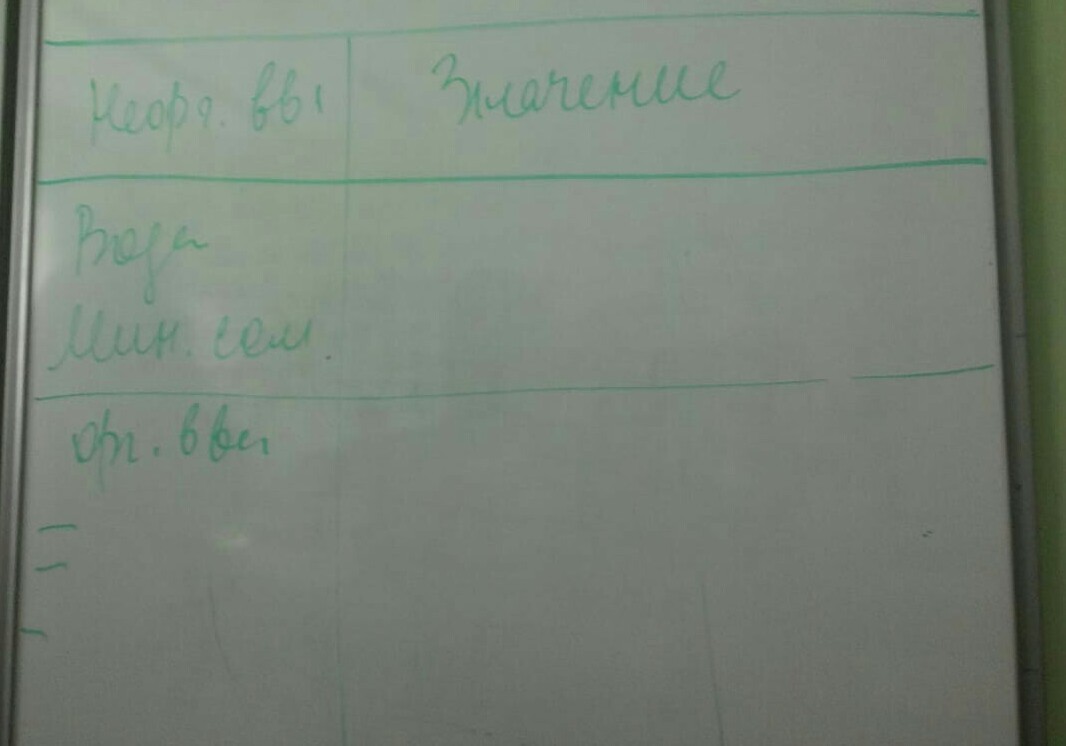 Неорг. вва Значение
Вода
Мин. соли.
Орг. вва